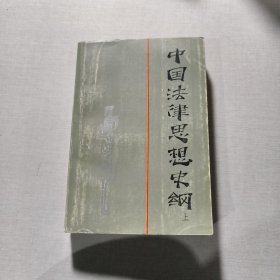 中国法律思想史纲
上